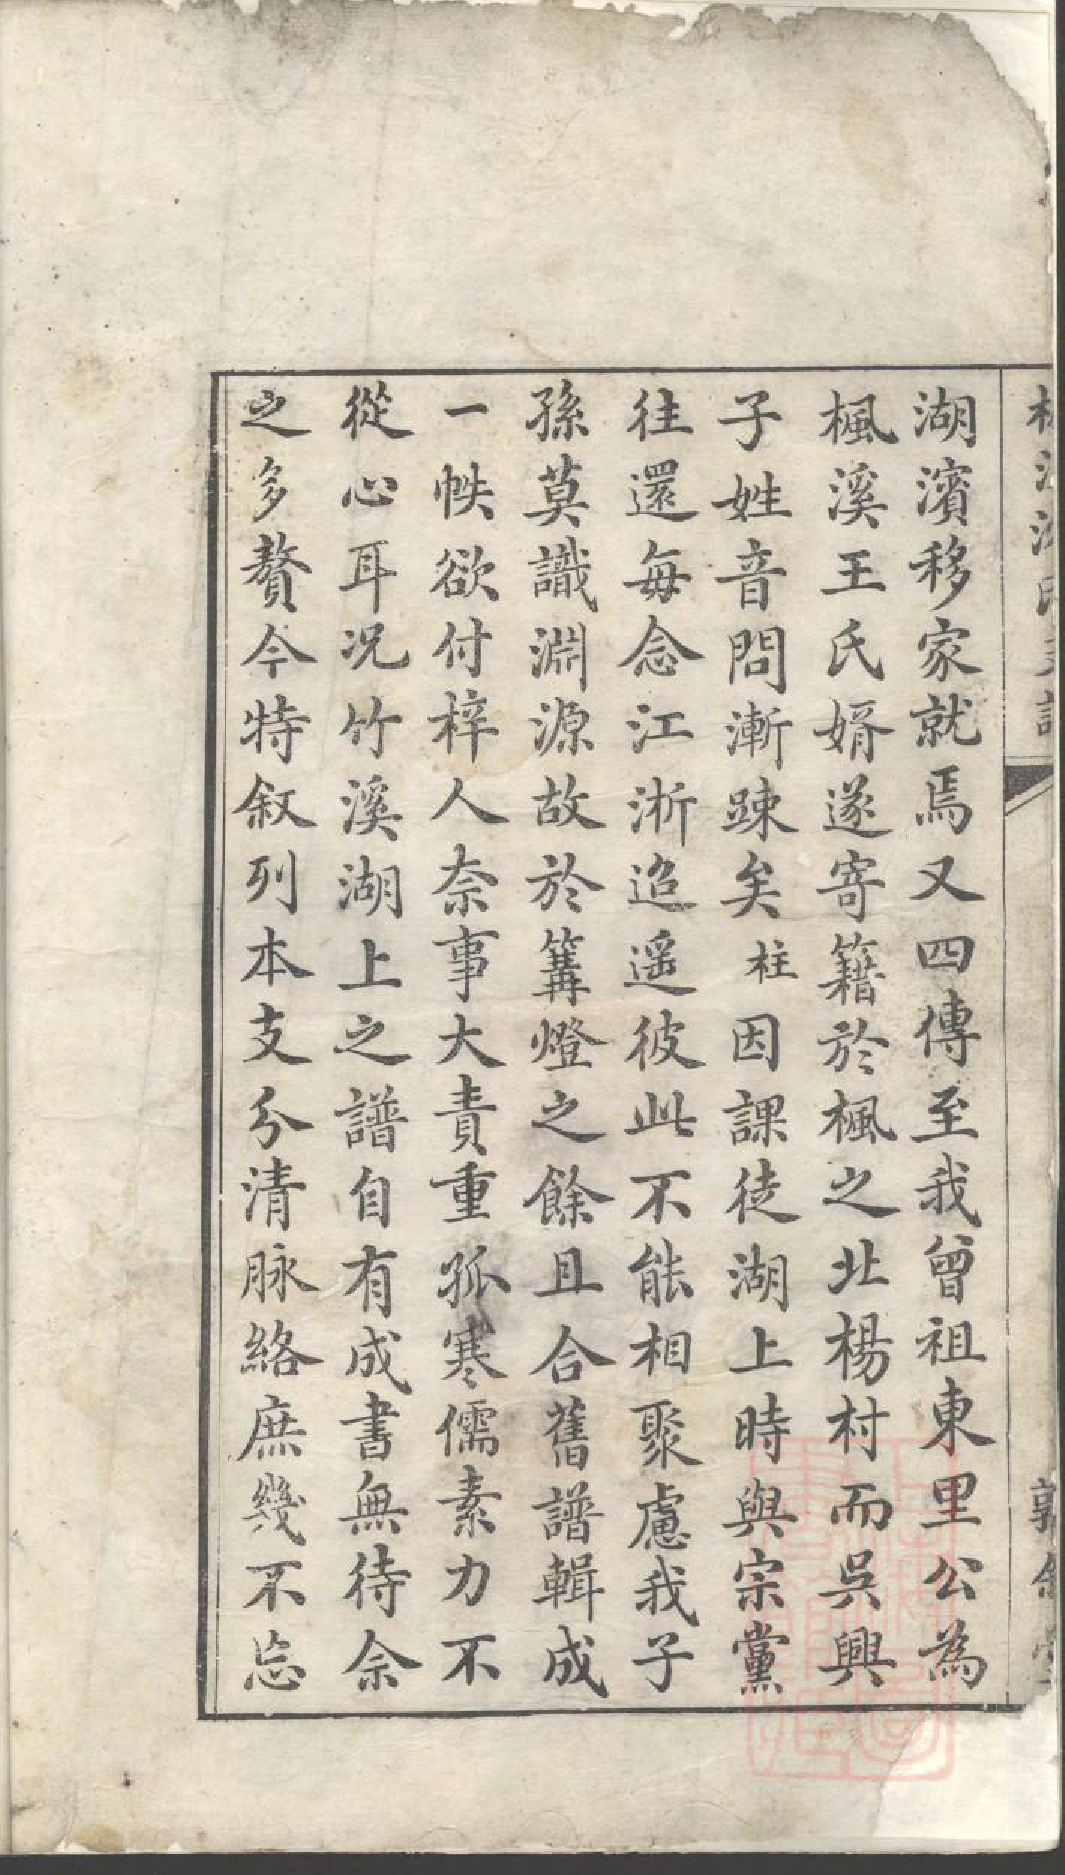 湖濱移家就焉又四傳至我曾祖東里公為
楓溪王氏婿遂寄籍於楓之北楊村而吳興
子姓音問漸踈矣柱因課徒湖上時與宗黨
往還每念江淅迢遥彼此不能相聚慮我子
孫莫識淵源故於篝燈之餘且合舊譜輯成
一帙欲付梓人奈事大責重孤寒儒素力不
從心耳况竹溪湖上之譜自有成書無待余
之多贅今特叙列本支分清脉絡庶幾不忘